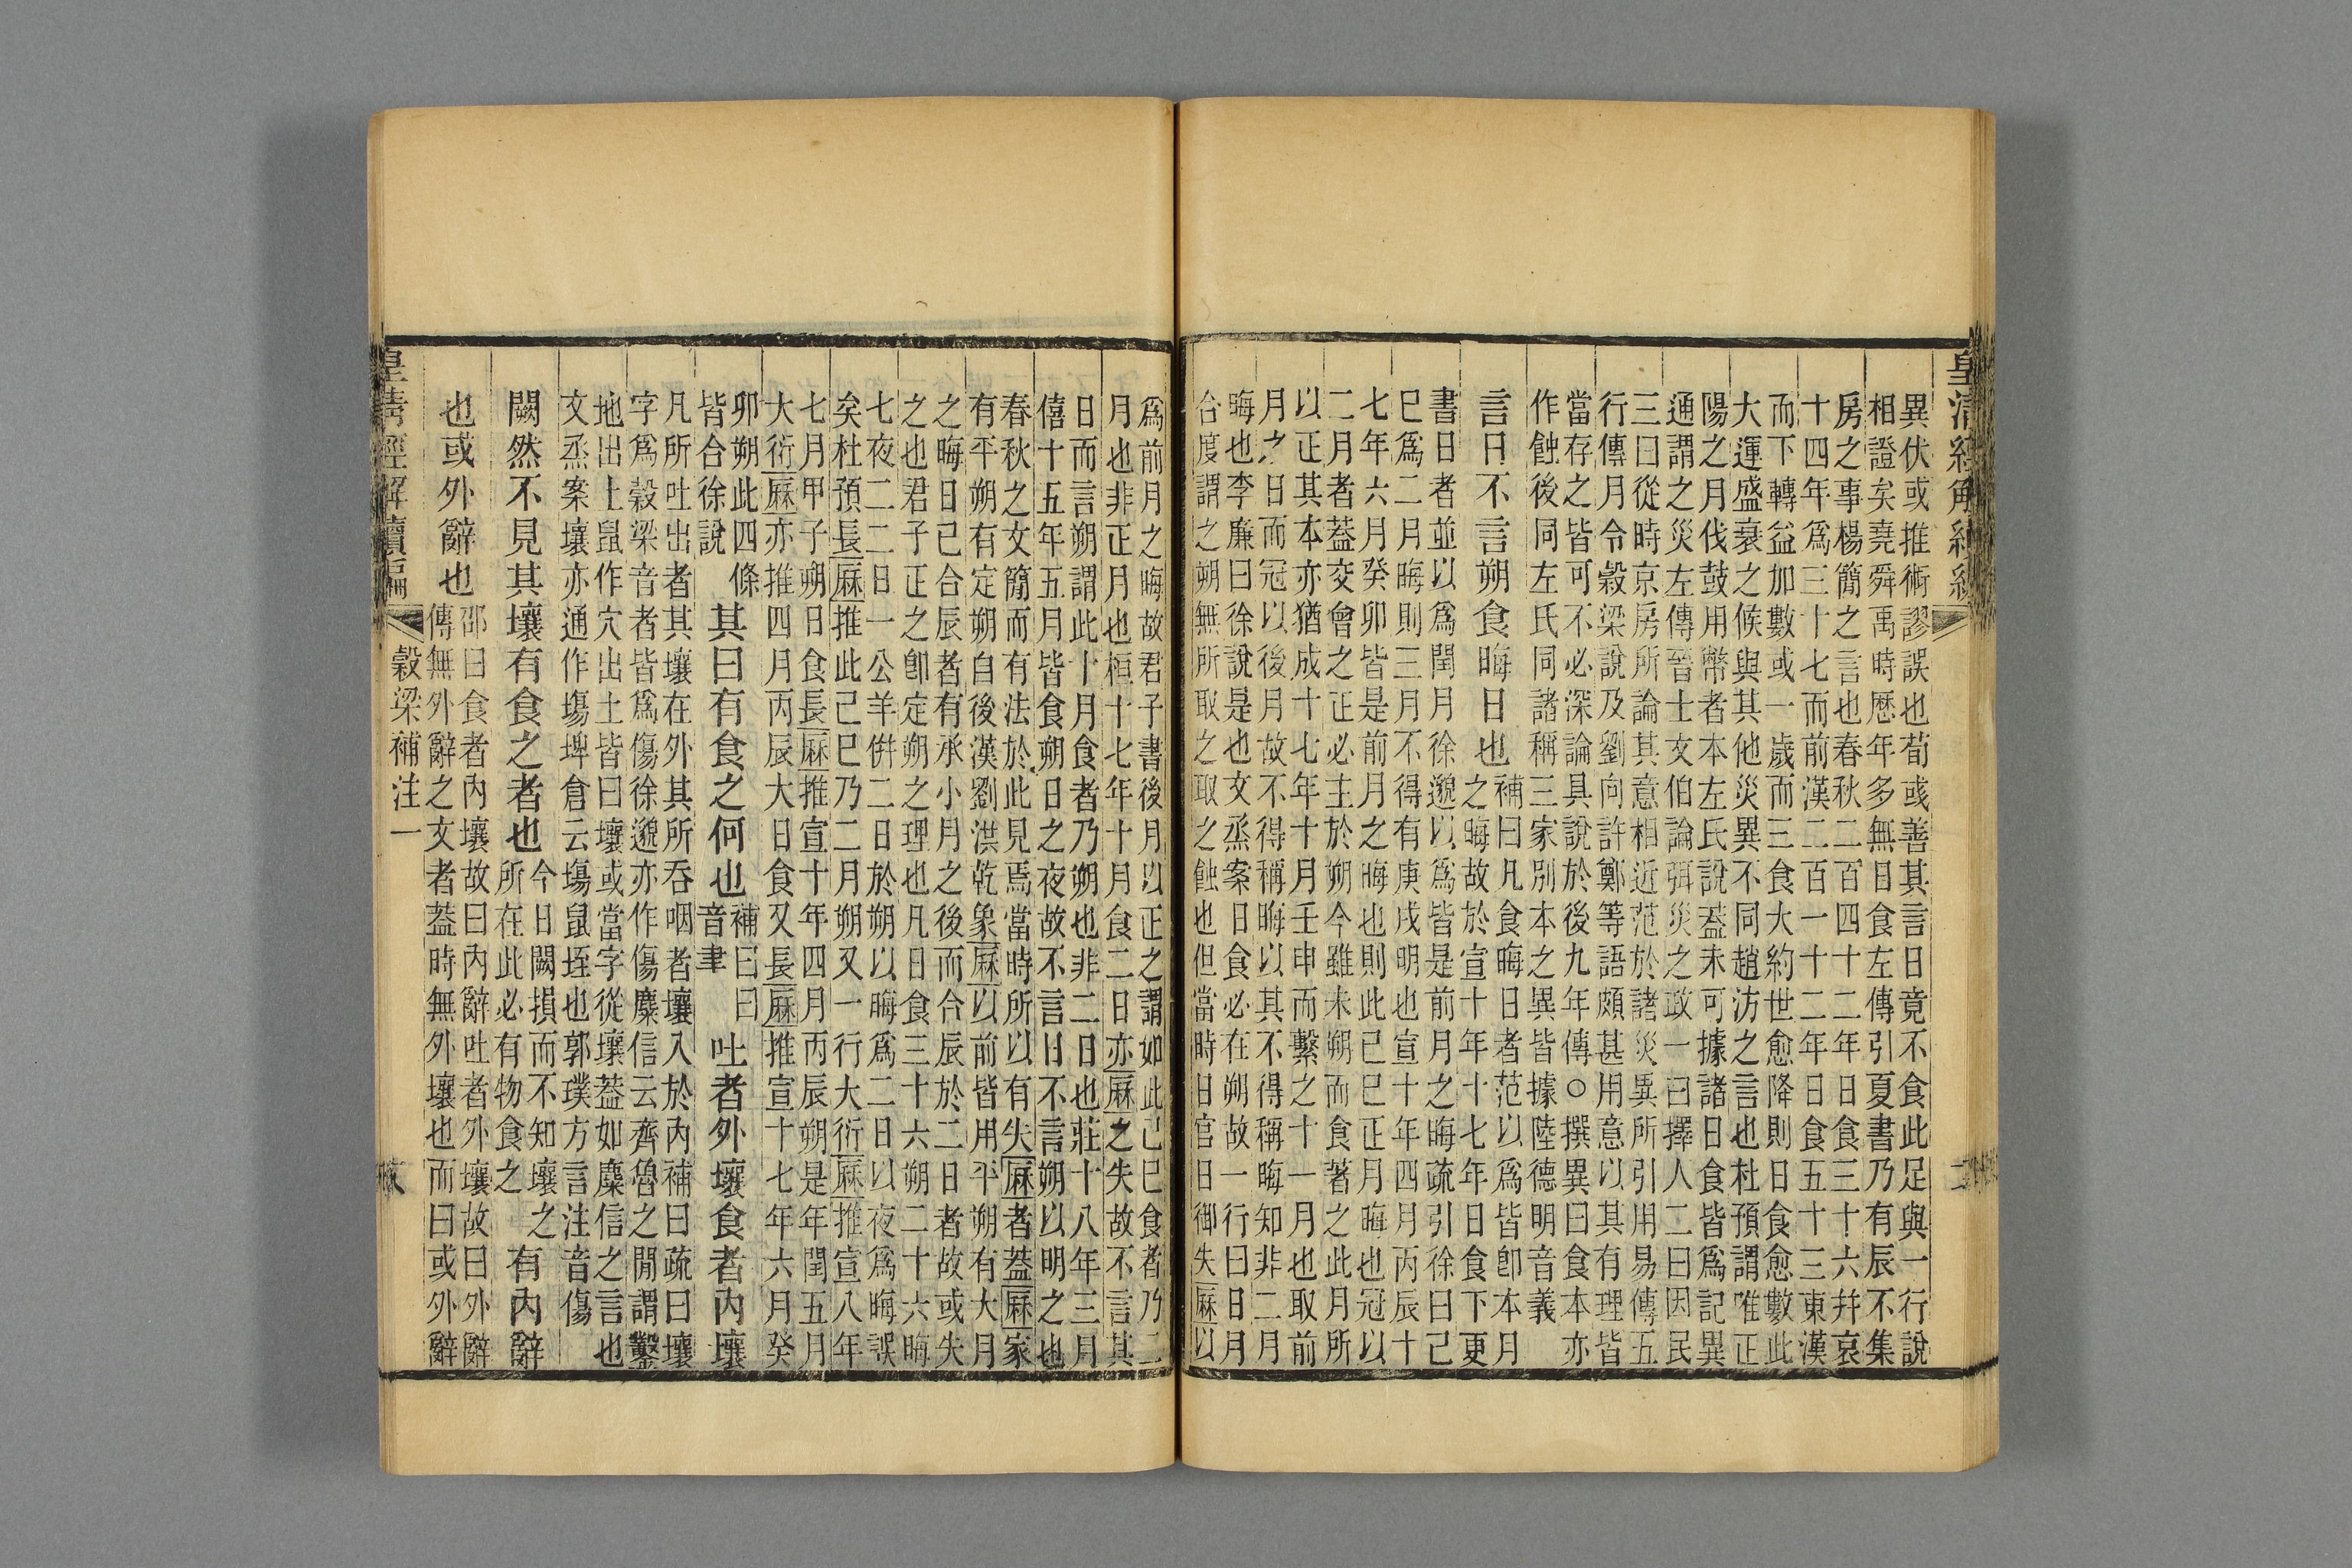 皇清經解續編
二
異伏或推術謬誤也荀彧善其言日竟不食此足與一行說
相證矣堯舜禹時歷年多無日食左傳引夏書乃有辰不集
房之事楊簡之言也春秋二百四十二年日食三十六并哀
十四年爲三十七而前漢二百一十二年日食五十三東漢
而下轉益加數或一歲而三食大約世愈降則日食愈數此
大運盛衰之候與其他災異不同趙汸之言也杜預謂唯正
陽之月伐鼓用幣者本左氏說葢未可據諸日食皆爲記異
通謂之災左傳晉士文伯論弭災之政一曰擇人二曰因民
三曰從時京房所論其意相近范於諸災異所引用易傳五
行傳月令穀梁說及劉向許鄭等語頗甚用意以其有理皆
當存之皆可不必深論具說於後九年傳○撰異曰食本亦
作蝕後同左氏同諸稱三家別本之異皆據陸德明音義
言日不言朔食晦日也
補曰凡食晦日者范以爲皆卽本月
之晦故於宣十年十七年日食下更
書日者並以爲閏月徐邈以爲皆是前月之晦疏引徐曰己
巳爲二月晦則三月不得有庚戌明也宣十年四月丙辰十
七年六月癸卯皆是前月之晦也則此己巳正月晦也冠以
二月者葢交會之正必主於朔今雖未朔而食著之此月所
以正其本亦猶成十七年十月壬申而繫之十一月也取前
月之日而冠以後月故不得稱晦以其不得稱晦知非二月
晦也李廉曰徐說是也文烝案日食必在朔故一行曰日月
合度謂之朔無所取之取之蝕也但當時日官日御失厤以
爲前月之晦故君子書後月以正之謂如此己巳食者乃二
月也非正月也桓十七年十月食二日亦厤之失故不言其
日而言朔謂此十月食者乃朔也非二日也莊十八年三月
僖十五年五月皆食朔日之夜故不言日不言朔以明之也
春秋之文簡而有法於此見焉當時所以有失厤者葢厤家
有平朔有定朔自後漢劉洪乾象厤以前皆用平朔有大月
之晦日己合辰者有承小月之後而合辰於二日者故或失
之也君子正之卽定朔之理也凡日食三十六朔二十六晦
七夜二二日一公羊倂二日於朔以晦爲二日以夜爲晦誤
矣杜預長厤推此己巳乃二月朔又一行大衍厤推宣八年
七月甲子朔日食長厤推宣十年四月丙辰朔是年閏五月
大衍厤亦推四月丙辰大日食又長厤推宣十七年六月癸
卯朔此四條
皆合徐說
其曰有食之何也
補曰曰
音聿
吐者外壤食者內壤
凡所吐出者其壤在外其所吞咽者壤入於內補曰疏曰壤
字爲穀梁音者皆爲傷徐邈亦作傷麋信云齊魯之閒謂鑿
地出土鼠作穴出土皆曰壤或當字從壤葢如麋信之言也
文烝案壤亦通作塲埤倉云塲鼠垤也郭璞方言注音傷
闕然不見其壤有食之者也
今日闕損而不知壤之
所在此必有物食之
有內辭
也或外辭也
邵曰食者內壤故曰內辭吐者外壤故曰外辭
傳無外辭之文者葢時無外壤也而曰或外辭
皇清經解續編
穀梁補注一